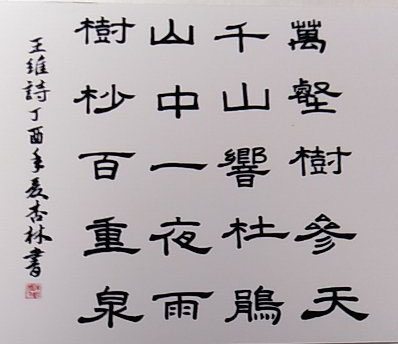 萬壑樹參天
千山響杜鵑
山中一夜雨
樹杪百重泉
王維詩丁酉年夏杏林書